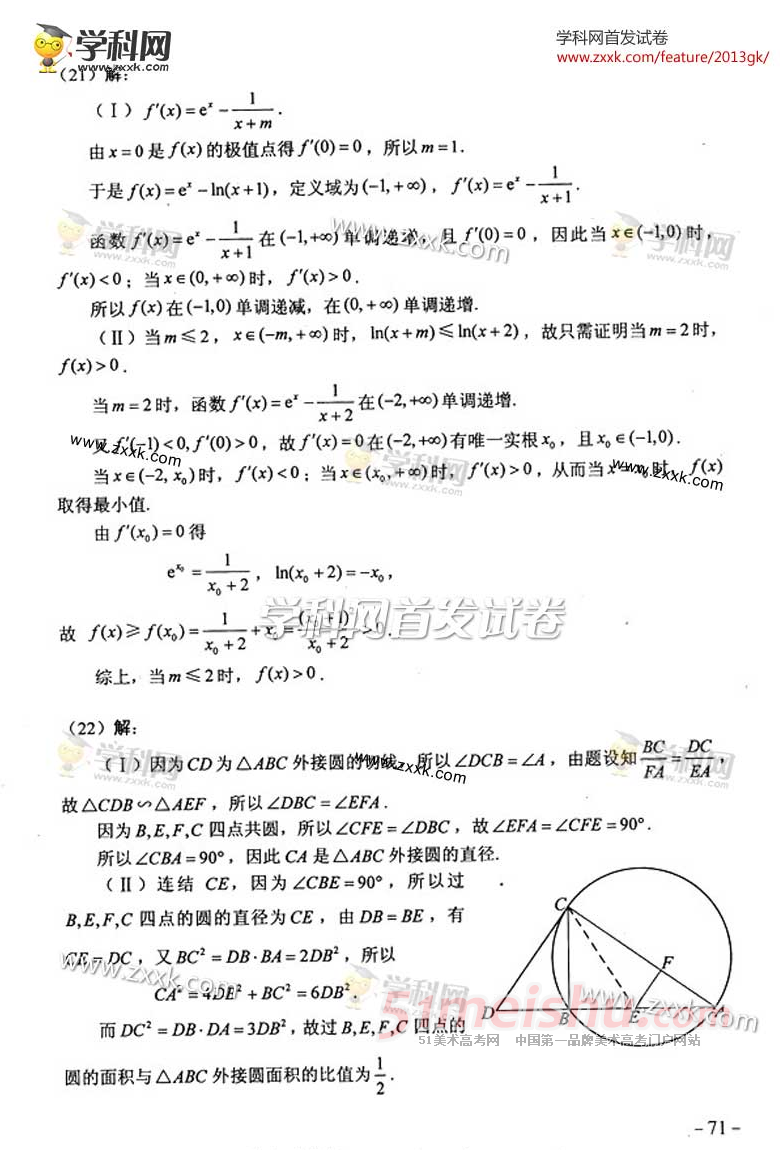 学科网
www.zxxk.com
学科网首发试卷
www.zxxk.com/feature/2013gk/
(21) 解:
(Ⅰ) f′(x)=eˣ−1/(x+m).
由 x=0 是 f(x) 的极值点得 f′(0)=0，所以 m=1.
于是 f(x)=eˣ−ln(x+1)，定义域为(-1,+∞)，f′(x)=eˣ−1/(x+1).
函数 f′(x)=eˣ−1/(x+1) 在(-1,+∞)单调递增，且 f′(0)=0，因此当 x∈(-1,0) 时，
f′(x)<0；当 x∈(0,+∞) 时，f′(x)>0.
所以 f(x) 在 (-1,0) 单调递减，在 (0,+∞) 单调递增.
(Ⅱ) 当 m≤2，x∈(-m,+∞) 时，ln(x+m)≤ln(x+2)，故只需证明当 m=2 时，
f(x)>0.
当 m=2 时，函数 f′(x)=eˣ−1/(x+2) 在(-2,+∞)单调递增.
又 f′(-1)<0, f′(0)>0，故 f′(x)=0 在(-2,+∞)有唯一实根 x₀，且 x₀∈(-1,0).
当 x∈(-2, x₀) 时，f′(x)<0；当 x∈(x₀,+∞) 时，f′(x)>0，从而当 x=x₀ 时，f(x)
取得最小值.
由 f′(x₀)=0 得
e^x₀=1/(x₀+2)，ln(x₀+2)=−x₀，
故 f(x)≥f(x₀)=1/(x₀+2)+x₀=(x₀+1)²/(x₀+2)>0.
综上，当 m≤2 时，f(x)>0.
(22) 解:
(Ⅰ) 因为 CD 为△ABC 外接圆的切线，所以∠DCB=∠A，由题设知 BC/FA=DC/EA，
故△CDB∽△AEF，所以∠DBC=∠EFA.
因为 B,E,F,C 四点共圆，所以∠CFE=∠DBC，故∠EFA=∠CFE=90°.
所以∠CBA=90°，因此 CA 是△ABC 外接圆的直径.
(Ⅱ) 连结 CE，因为∠CBE=90°，所以过
B,E,F,C 四点的圆的直径为 CE，由 DB=BE，有
CE=DC，又 BC²=DB·BA=2DB²，所以
CA²=4DB²+BC²=6DB².
而 DC²=DB·DA=3DB²，故过 B,E,F,C 四点的
圆的面积与△ABC 外接圆面积的比值为 1/2.
C
F
D
B
E
A
学科网首发试卷
51meishu.com
51美术高考网 中国第一品牌美术高考门户网站
-71-